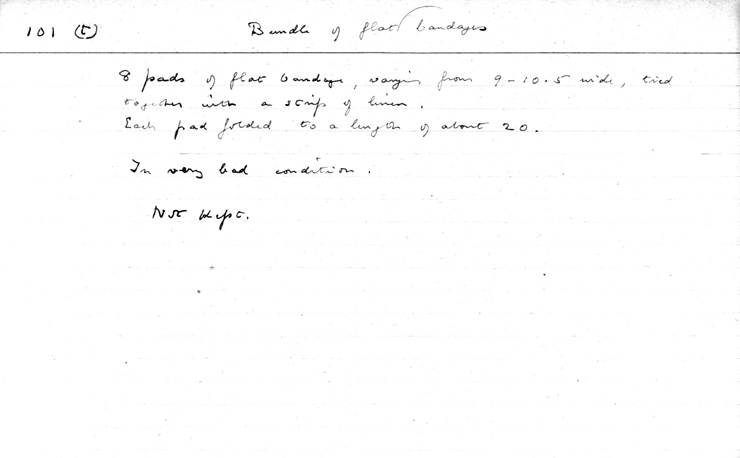 101 (t) Bundle of flat bandages
8 pads of flat bandage, varying from 9-10.5 wide, tied
together with a strip of linen.
Each pad folded to a length of about 20.
In very bad condition.
Not kept.